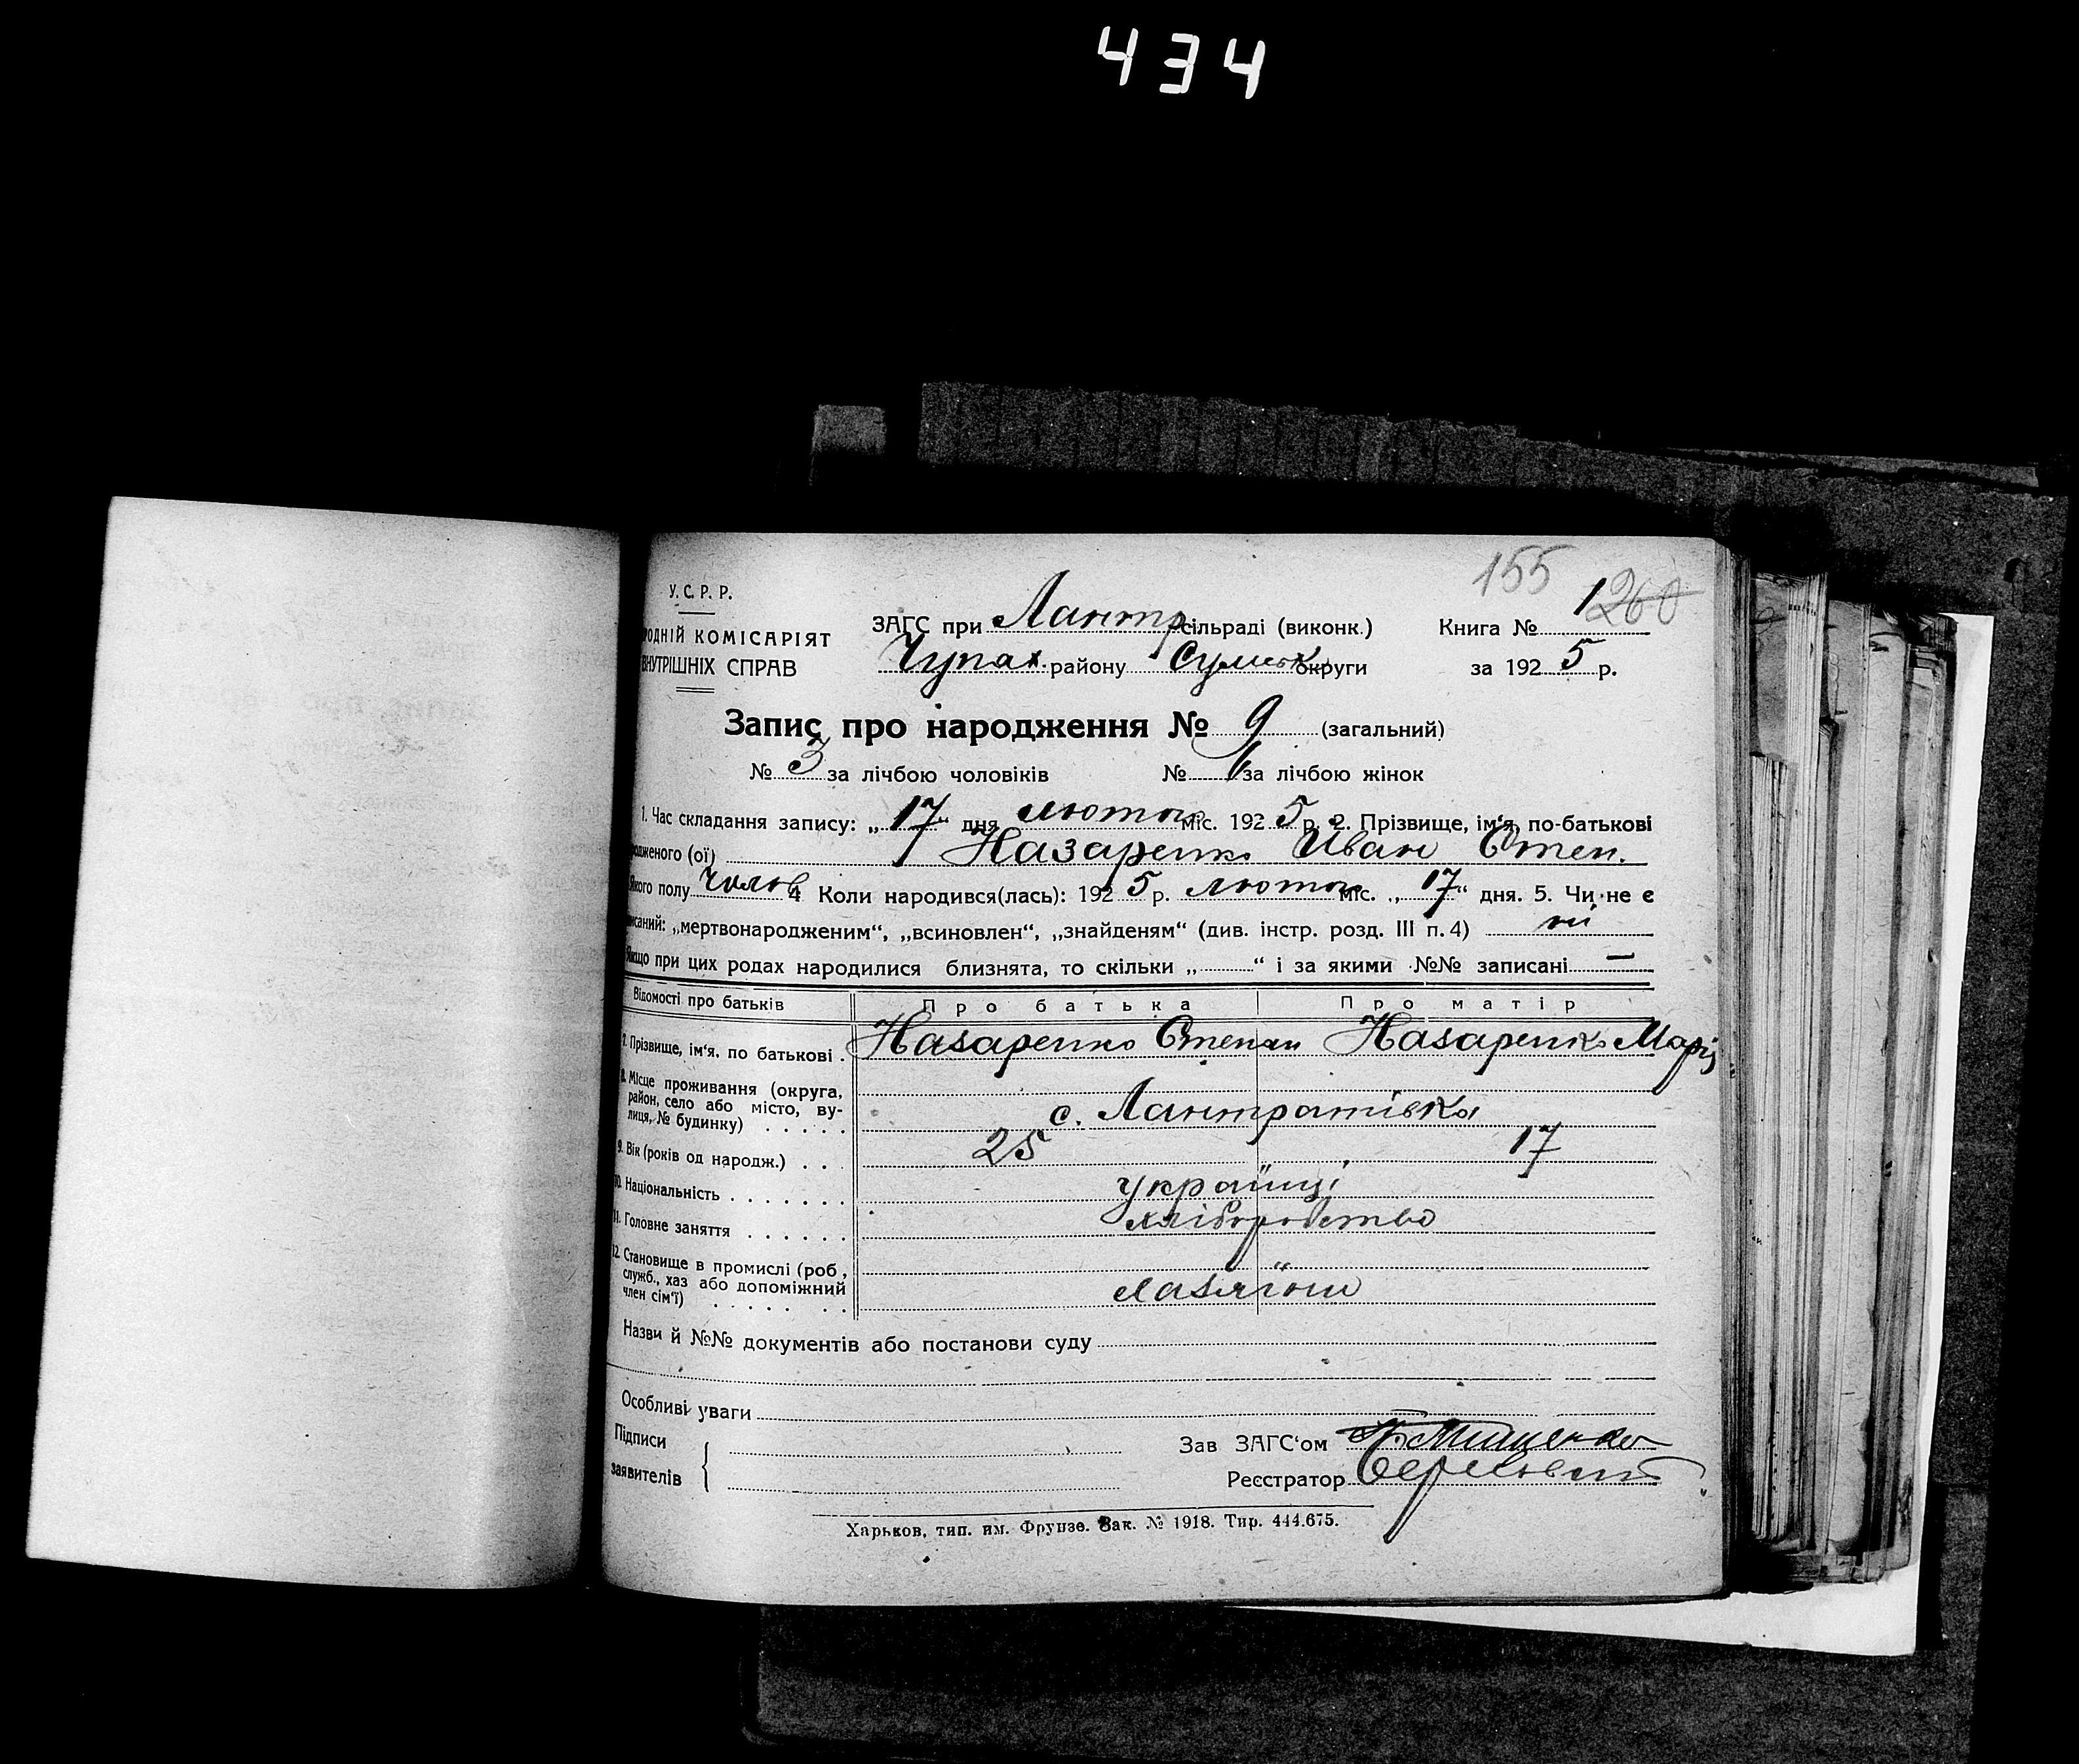 434
155
У. С. Р. Р.
ЗАГС при Лантр. сільраді (виконк.) Книга № 1 260
ОДНІЙ КОМІСАРІЯТ
ВНУТРІШНІХ СПРАВ Чупах. району Сумськ. округи за 1925 р.
Запис про народження № 9 (загальний)
№ 3 за лічбою чоловіків № 6 за лічбою жінок
1. Час складання запису: „17“ дня лютого міс. 1925 р. 2. Прізвище, ім'я, по-батькові
родженого (ої) Назаренко Иван Степ.
Якого полу чолов 4 Коли народився(лась): 1925 р. лютого міс. „17“ дня. 5. Чи не є
писаний: „мертвонародженим“, „всиновлен“, „знайденям“ (див. інстр. розд. III п. 4) ні
Якщо при цих родах народилися близнята, то скільки „ “ і за якими №№ записані —
Відомості про батьків Про батька Про матір
7. Прізвище, ім'я, по батькові . Назаренко Степан Назаренко Марія
8. Місце проживання (округа,
район, село або місто, ву-
лиця, № будинку) . . . . . с. Лантратівка
9. Вік (років од народж.) . . . 25 17
10. Національність . . . . . . . українці
11. Головне заняття . . . . . . хліборобство
12. Становище в промислі (роб.,
служб., хаз або допоміжний
член сім'ї) . . . . . . . хазяїни
Назви й №№ документів або постанови суду
Особливі уваги
Підписи
заявителів
Зав ЗАГС'ом Мищенко
Реєстратор
Харьков, тип. им. Фрунзе. Зак. № 1918. Тир. 444.675.